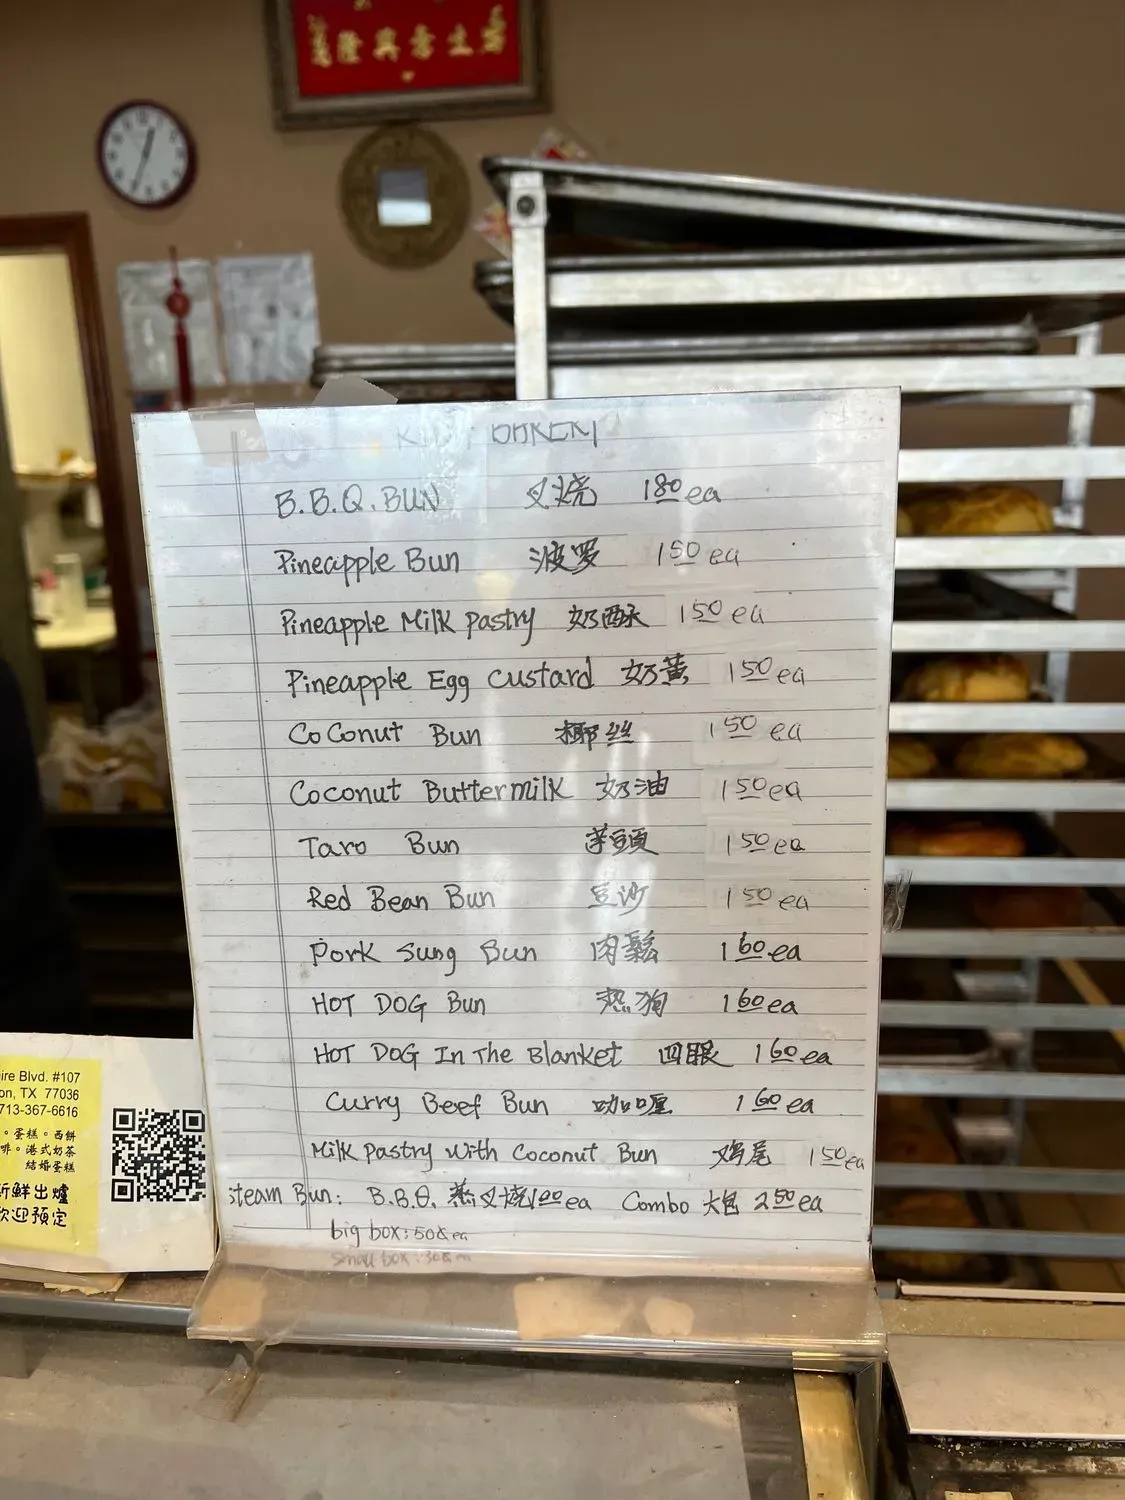 生意興隆
BAKERY
B.B.Q. BUN 叉烧 1.80 ea
Pineapple Bun 波罗 1.50 ea
Pineapple Milk Pastry 奶酥 1.50 ea
Pineapple Egg Custard 奶黄 1.50 ea
CoConut Bun 椰丝 1.50 ea
Coconut Buttermilk 奶油 1.50 ea
Taro Bun 芋頭 1.50 ea
Red Bean Bun 豆沙 1.50 ea
Pork Sung Bun 肉鬆 1.60 ea
HOT DOG Bun 热狗 1.60 ea
HOT DOG In The Blanket 四眼 1.60 ea
Curry Beef Bun 咖喱 1.60 ea
Milk Pastry With Coconut Bun 鸡尾 1.50 ea
Steam Bun: B.B.Q. 蒸叉烧 ea Combo 大包 2.50 ea
big box: 50¢ ea
small box: 30¢ ea
ire Blvd. #107
on, TX 77036
713-367-6616
。蛋糕。西餅
啡。港式奶茶
結婚蛋糕
新鮮出爐
歡迎預定